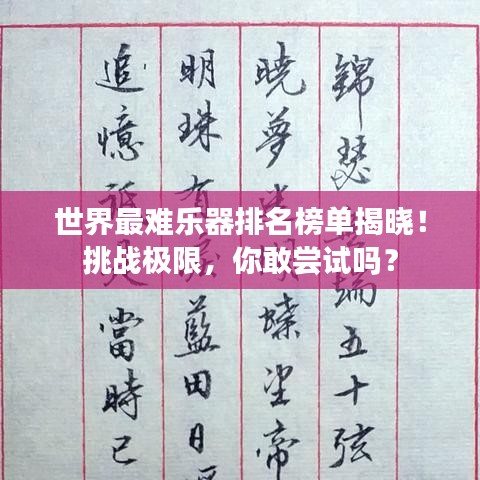 世界最难乐器排名榜单揭晓！
挑战极限，你敢尝试吗？
錦瑟端五十弦
曉夢蝶望帝
明珠有藍田日
追憶當時已